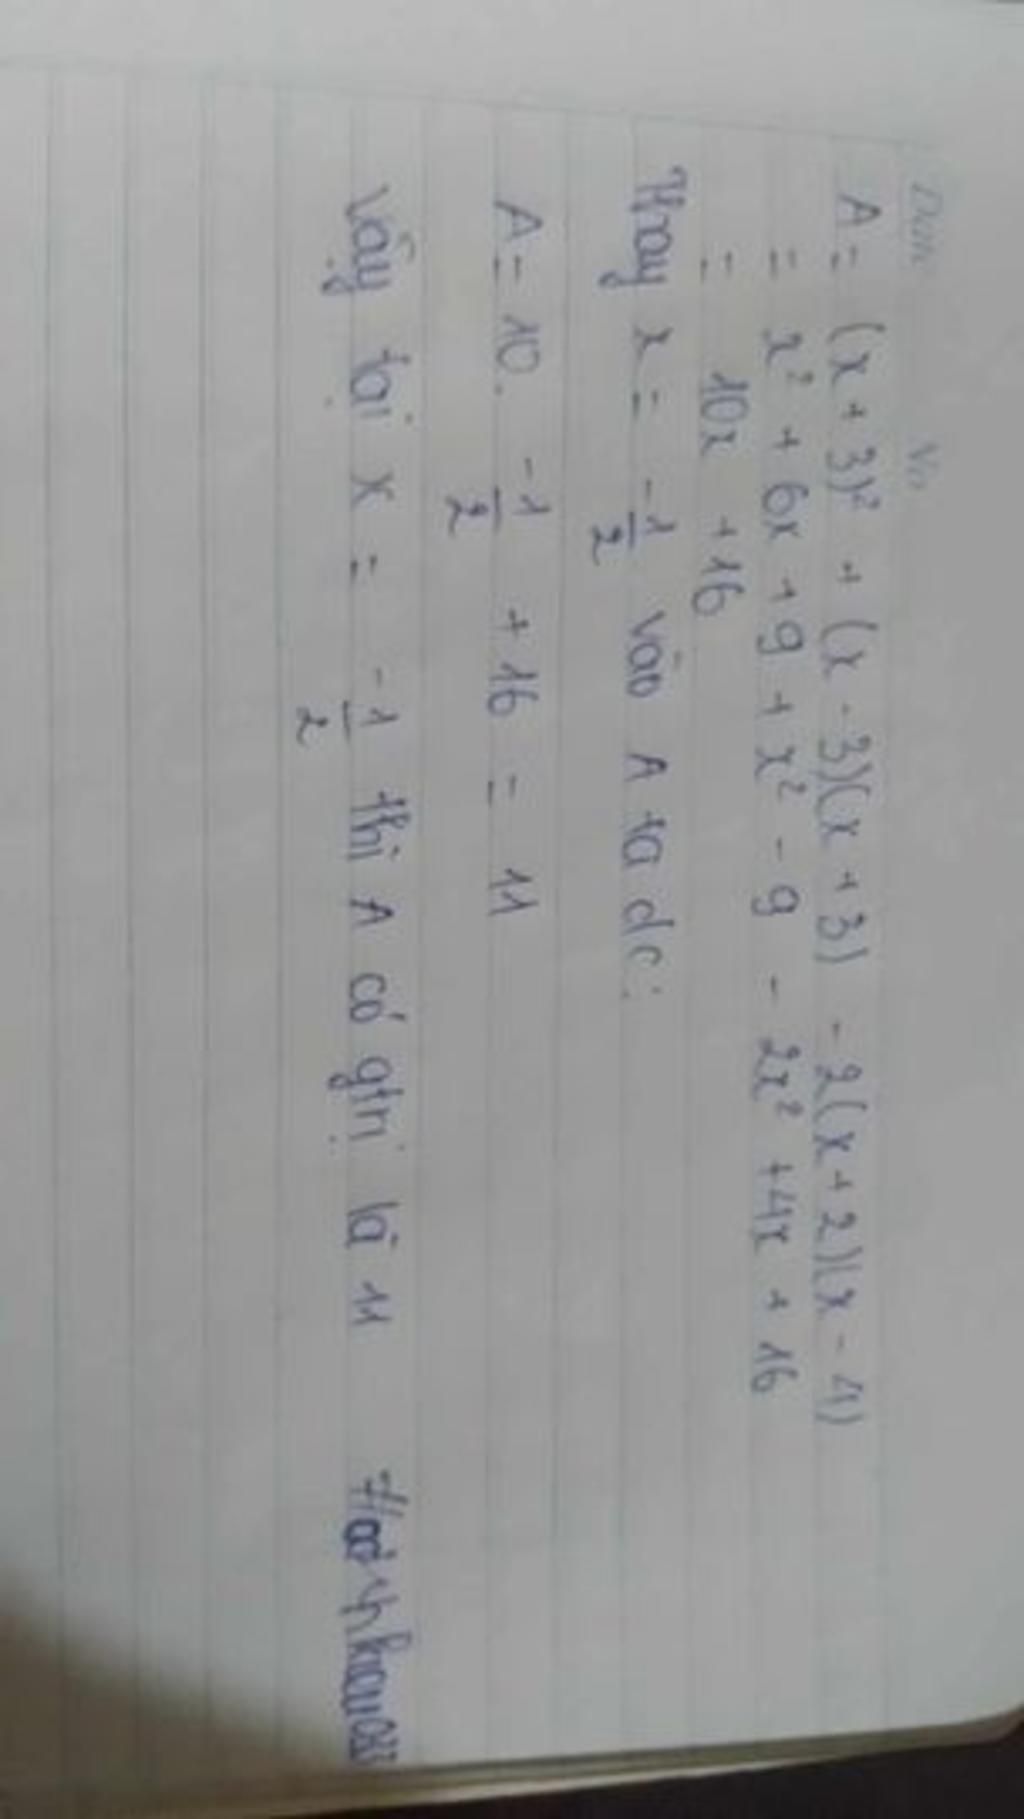 Date No
A = (x + 3)² + (x - 3)(x + 3) - 2(x + 2)(x - 4)
= x² + 6x + 9 + x² - 9 - 2x² + 4x + 16
= 10x + 16
Thay x = -1/2 vào A ta dc:
A = 10. -1/2 + 16 = 11
Vậy tại x = -1/2 thì A có gtrị là 11